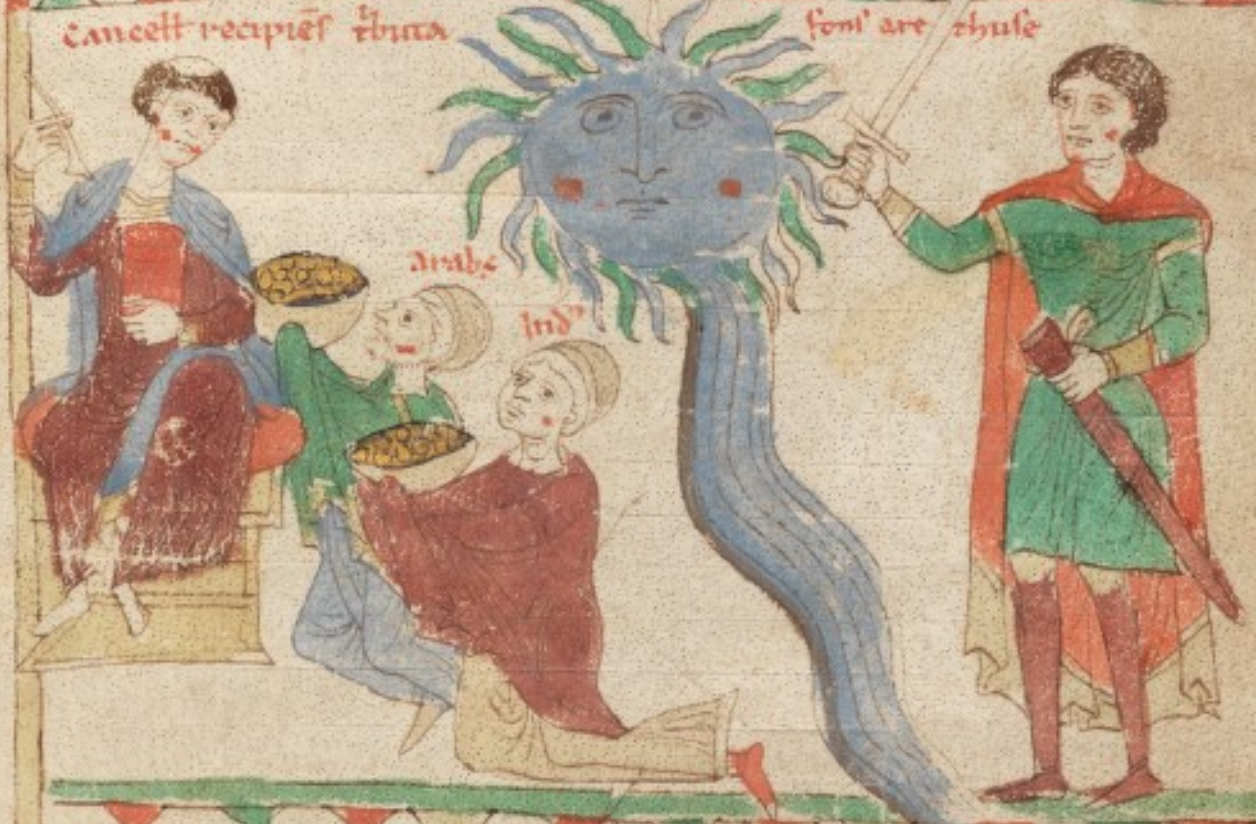 cancell recipiēs t̾buta
fons are thuse
arabs
Ind⁹